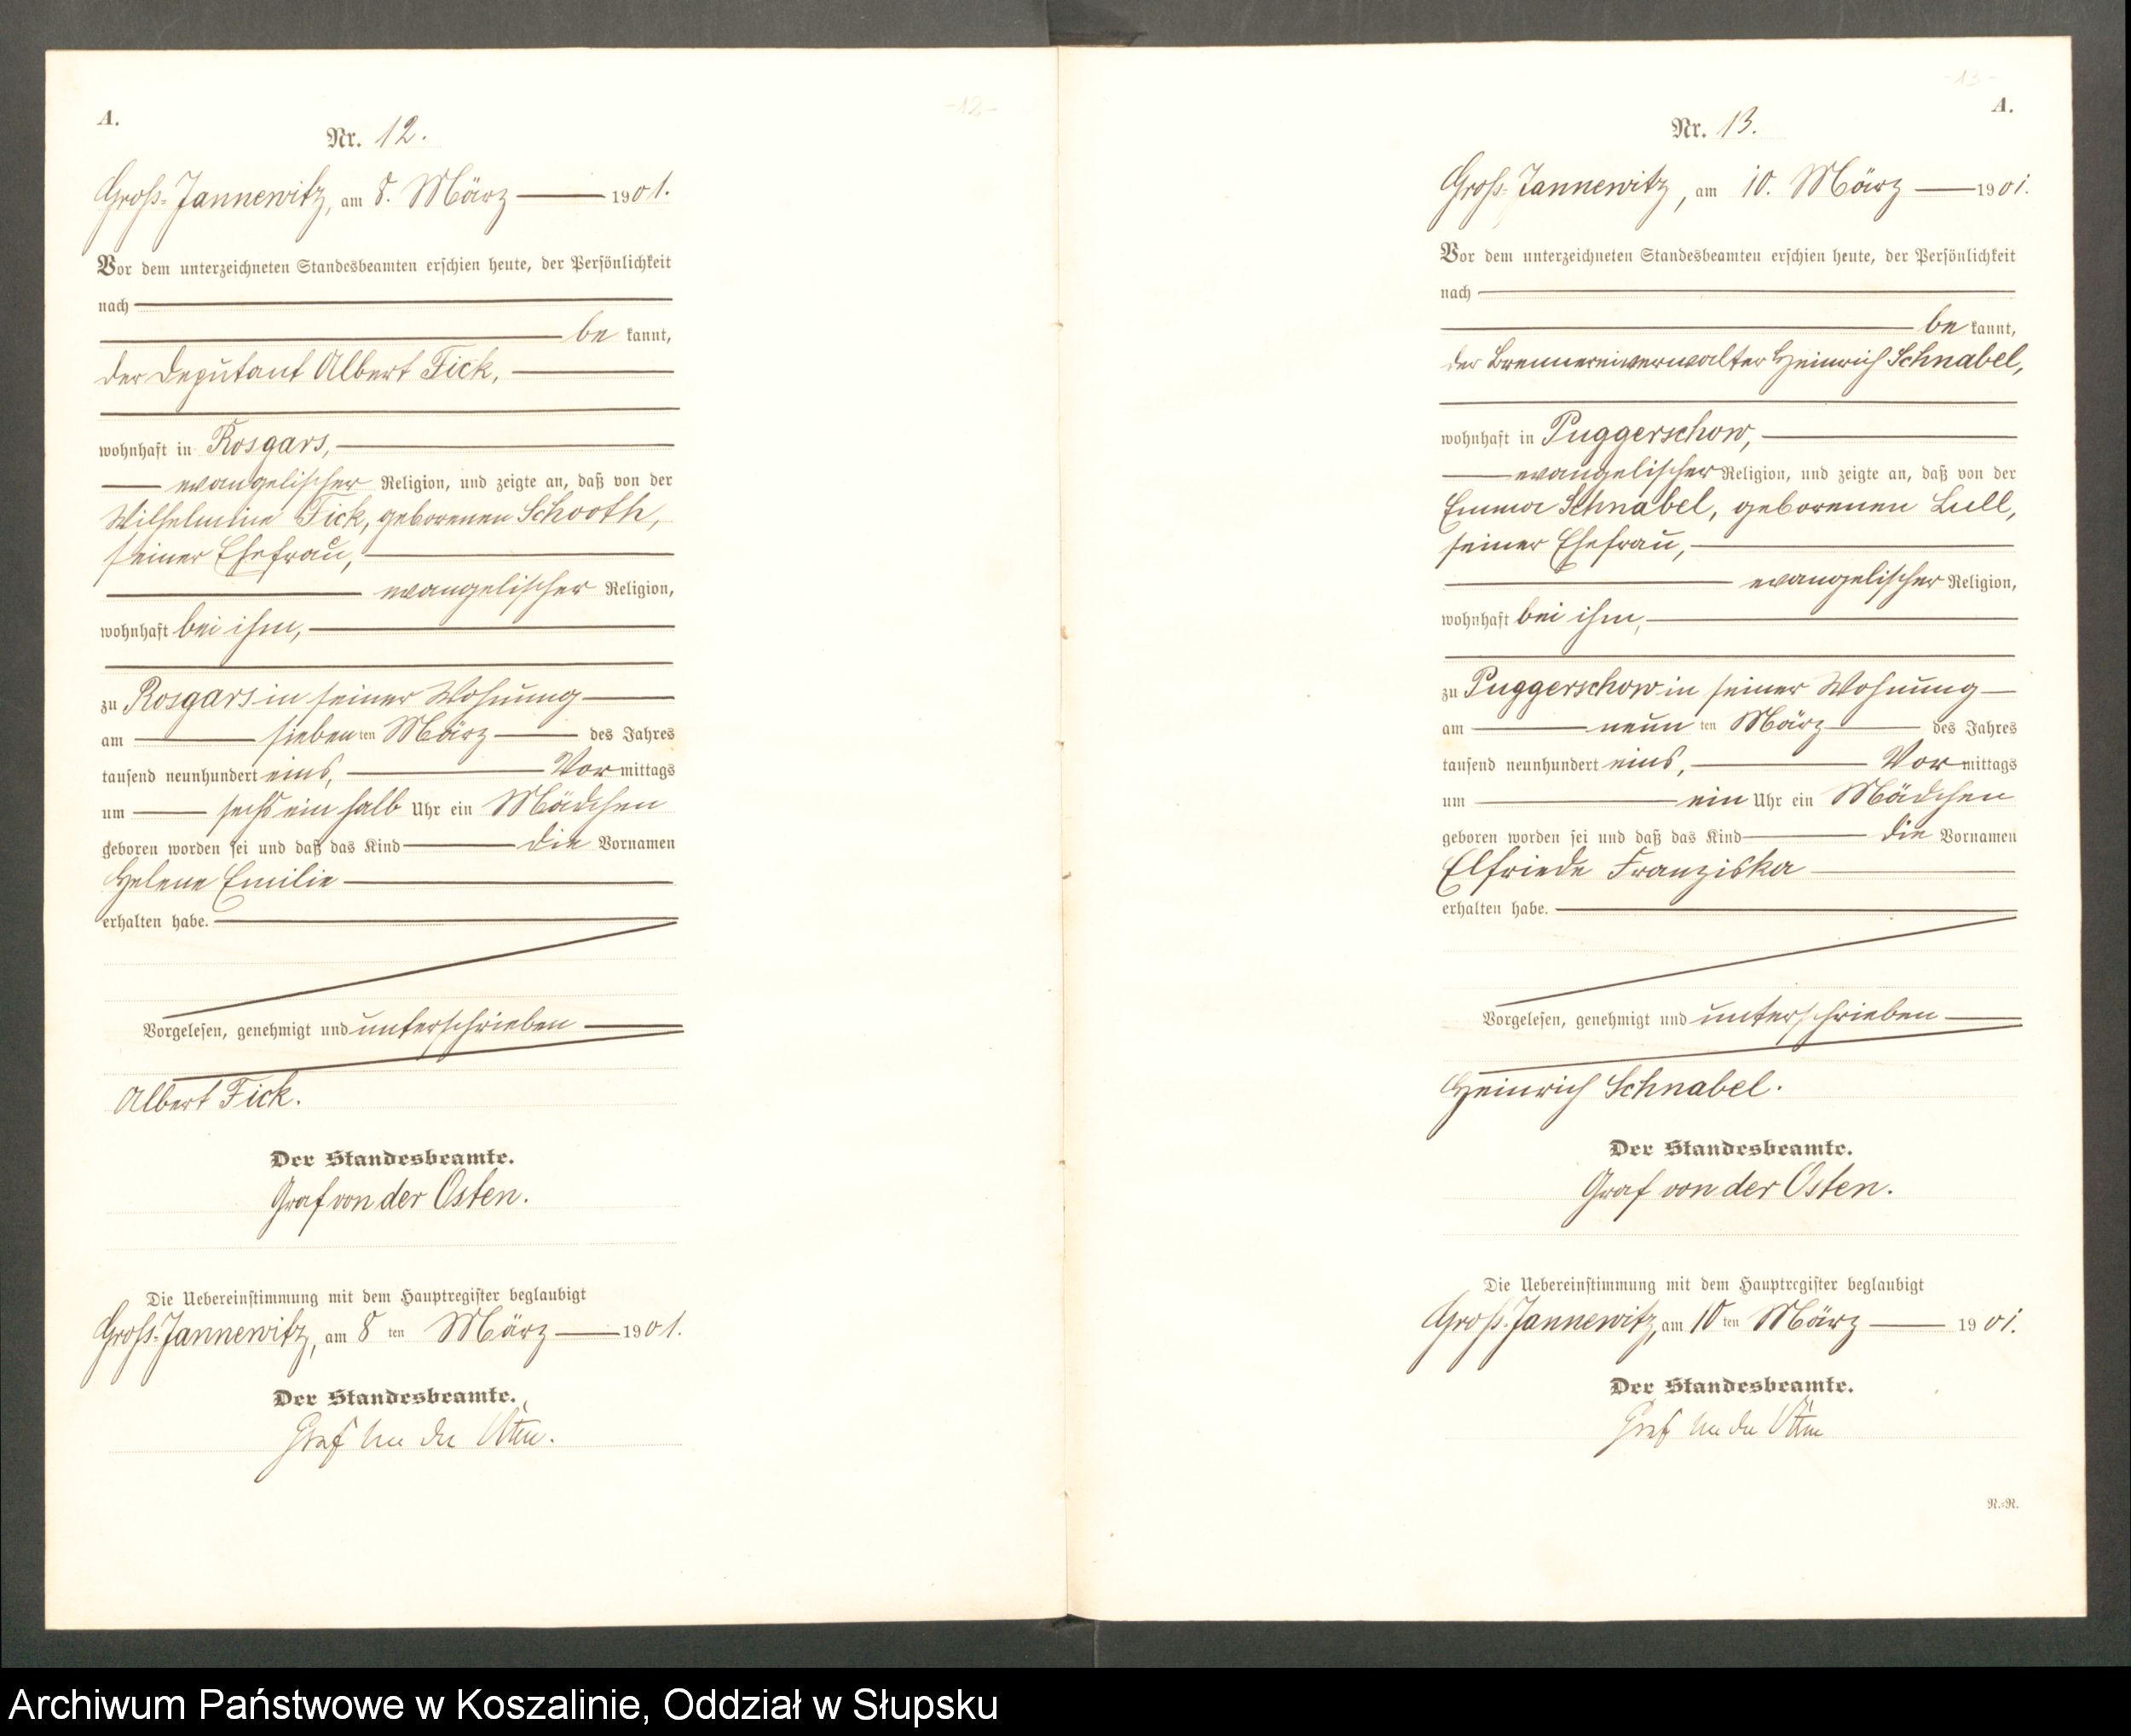 -12-
A.
Nr. 12.
Groß-Jannewitz, am 8. März 1901.
Vor dem unterzeichneten Standesbeamten erschien heute, der Persönlichkeit
nach
be kannt,
der Deputant Albert Fick,
wohnhaft in Rosgars,
evangelischer Religion, und zeigte an, daß von der
Wilhelmine Fick, geborenen Schooth,
seiner Ehefrau,
evangelischer Religion,
wohnhaft bei ihm,
zu Rosgars in seiner Wohnung
am sieben ten März des Jahres
tausend neunhundert eins, Vor mittags
um sechs ein halb Uhr ein Mädchen
geboren worden sei und daß das Kind die Vornamen
Helene Emilie
erhalten habe.
Vorgelesen, genehmigt und unterschrieben
Albert Fick.
Der Standesbeamte.
Graf von der Osten.
Die Uebereinstimmung mit dem Hauptregister beglaubigt
Groß-Jannewitz, am 8 ten März 1901.
Der Standesbeamte.
Graf von der Osten.
-13-
A.
Nr. 13.
Groß-Jannewitz, am 10. März 1901.
Vor dem unterzeichneten Standesbeamten erschien heute, der Persönlichkeit
nach
be kannt,
der Brennereiverwalter Heinrich Schnabel,
wohnhaft in Puggerschow,
evangelischer Religion, und zeigte an, daß von der
Emma Schnabel, geborenen Lull,
seiner Ehefrau,
evangelischer Religion,
wohnhaft bei ihm,
zu Puggerschow in seiner Wohnung
am neun ten März des Jahres
tausend neunhundert eins, Vor mittags
um ein Uhr ein Mädchen
geboren worden sei und daß das Kind die Vornamen
Elfriede Franziska
erhalten habe.
Vorgelesen, genehmigt und unterschrieben
Heinrich Schnabel.
Der Standesbeamte.
Graf von der Osten.
Die Uebereinstimmung mit dem Hauptregister beglaubigt
Groß-Jannewitz, am 10 ten März 1901.
Der Standesbeamte.
Graf von der Osten
N.=N.
Archiwum Państwowe w Koszalinie, Oddział w Słupsku